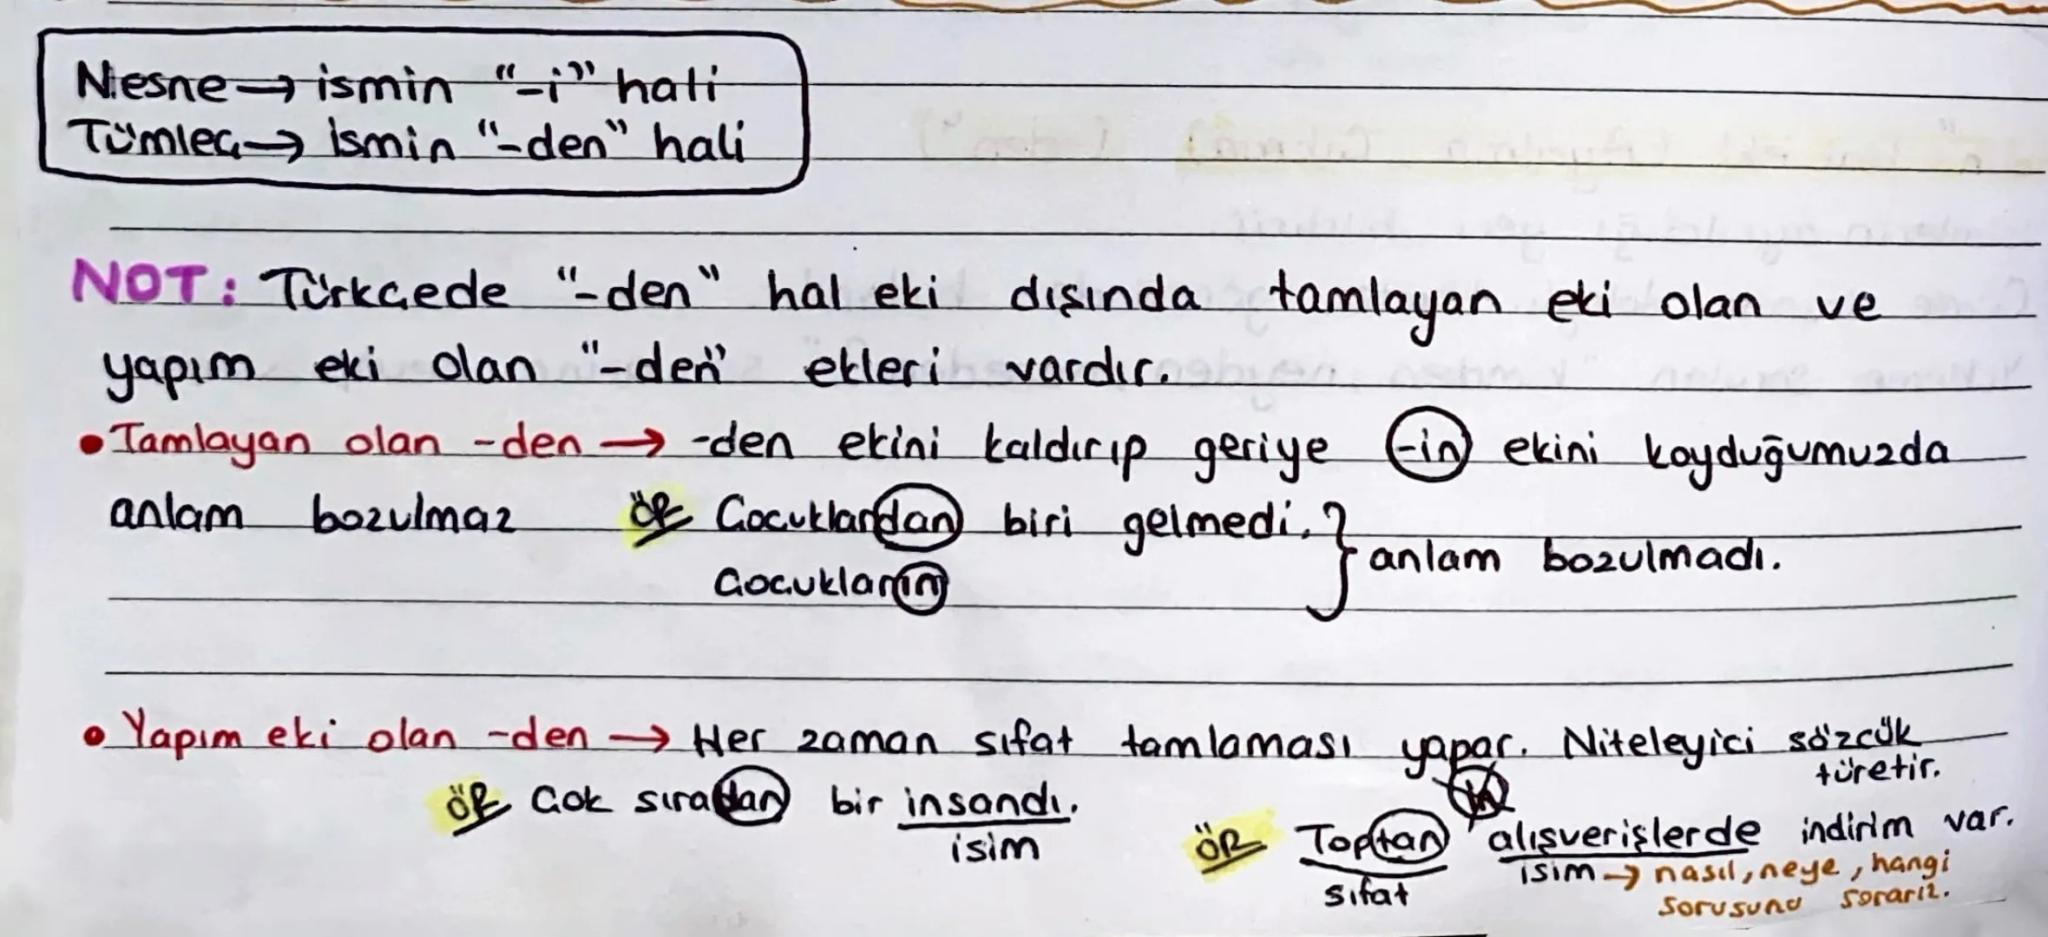 Nesne → ismin "-i" hali
Tümleç → ismin "-den" hali
NOT: Türkçede "-den" hal eki dışında tamlayan eki olan ve
yapım eki olan "-den" ekleri vardır.
• Tamlayan olan -den → -den ekini kaldırıp geriye -in ekini koyduğumuzda
anlam bozulmaz ÖR Çocuklardan biri gelmedi. } anlam bozulmadı.
Çocukların
• Yapım eki olan -den → Her zaman sıfat tamlaması yapar. Niteleyici sözcük
türetir.
ÖR Çok sıradan bir insandı.
isim
in
ÖR Toptan alışverişlerde indirim var.
sıfat isim → nasıl, neye, hangi
sorusunu sorarız.